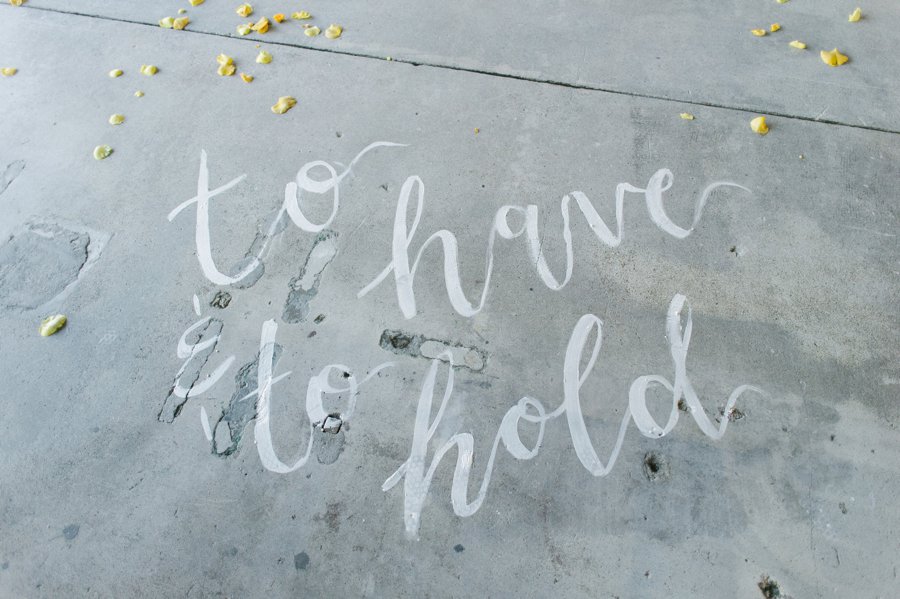 to have
& to hold